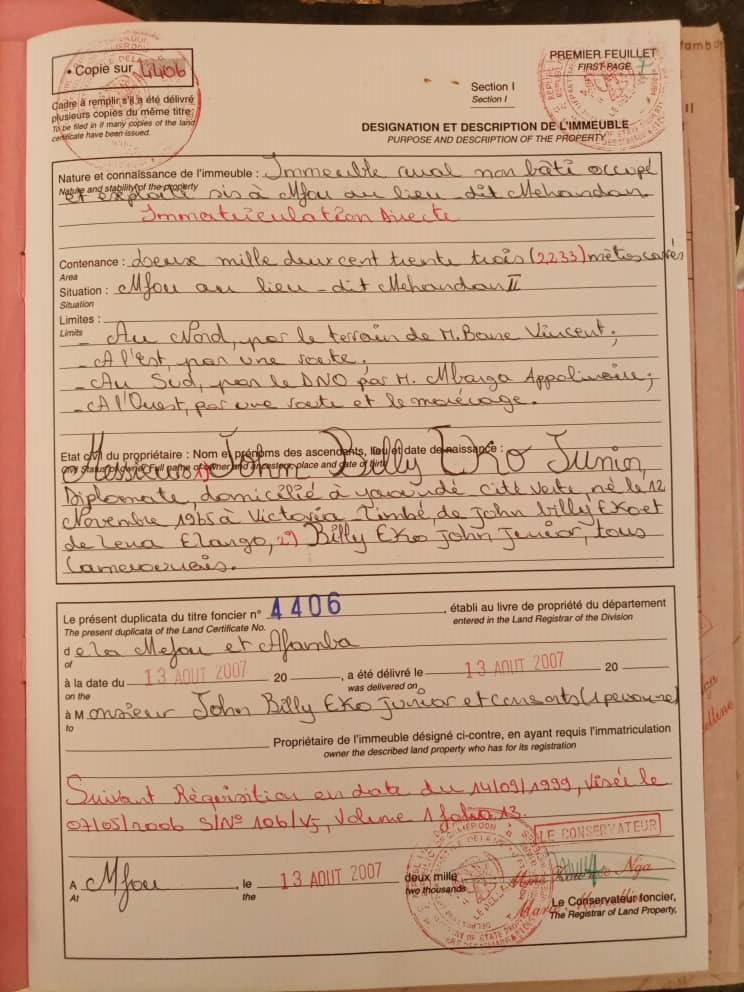 • Copie sur 4406
PREMIER FEUILLET
FIRST PAGE
Section I
Section I
Cadre à remplir s'il a été délivré
plusieurs copies du même titre.
To be filed in if many copies of the land
certificate have been issued.
DESIGNATION ET DESCRIPTION DE L'IMMEUBLE
PURPOSE AND DESCRIPTION OF THE PROPERTY
Nature et connaissance de l'immeuble : Immeuble rural non bâti occupé
Nature and stability of the property
et exploité sis à Mfou au lieu-dit Mehandan.
Immatriculation Directe
Contenance : Deux mille deux cent trente trois (2,233) mètres carrés
Area
Situation : Mfou au lieu-dit Mehandan II
Situation
Limites :
Limits
- Au Nord, par le terrain de M. Bane Vincent;
- A l'est, par une route;
- Au Sud, par le DNO par M. Mbarga Appolinaire;
- A l'Ouest, par une route et le marécage.
Etat civil du propriétaire : Nom et prénoms des ascendants, lieu et date de naissance :
Civil Status of owner Full name of owner and ancestors, place and date of birth
Messieurs 1) John Billy Eko Junior,
Diplomate, domicilié à yaoundé cité verte, né le 12
Novembre 1965 à Victoria Limbé, de John billy Eko et
de Lena Elango, 2) Billy Eko John Junior, tous
Camerounais.
Le présent duplicata du titre foncier n° 4406 , établi au livre de propriété du département
The present duplicata of the Land Certificate No. entered in the Land Registrar of the Division
de la Mefou et Afamba
of
à la date du 13 AOUT 2007 20 , a été délivré le 13 AOUT 2007 20
on the was delivered on
à Monsieur John Billy Eko Junior et consorts (1 personne)
to
Propriétaire de l'immeuble désigné ci-contre, en ayant requis l'immatriculation
owner the described land property who has for its registration
Suivant Réquisition en date du 14/09/1999, Visée le
07/05/2006 S/N° 106/V5, Volume 1 folio 13.
LE CONSERVATEUR
A Mfou , le 13 AOUT 2007 deux mille
At the two thousands
Le Conservateur foncier,
The Registrar of Land Property,